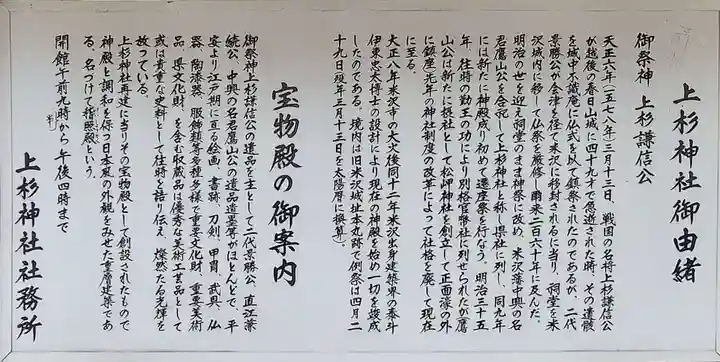 上杉神社御由緒
御祭神 上杉謙信公
天正六年(一五七八年)三月十三日、戦国の名将上杉謙信公
が越後の春日山城に四十九才で急逝された時、その遺骸
を城中不識庵に仏式を以て鎮祭されたのであるが、二代
景勝公が会津を径て米沢に移封されるに当り、祠堂を米
沢城内に移し仏祭を厳修し爾来二百六十年に及んだ。
明治の世を迎え祠堂のまま神祭に改め、米沢藩中興の名
君鷹山公を合祀して上杉神社と称し県社に列し、同九年
には新たに神殿成り初めて遷座祭を行なう。明治三十五
年、往時の勤王の功により別格官幣社に列せられたが鷹
山公は新たに摂社として松岬神社を創立して正面濠の外
に鎮座、先年の神社制度の改革によって社格を廃して現在
に至る。
大正八年米沢市の大火後同十二年米沢出身建築界の泰斗
伊東忠太博士の設計により現在の神殿を始め一切を竣成
したのである。境内は旧米沢城址本丸跡で例祭は四月二
十九日(薨年三月十三日を太陽暦に換算)。
宝物殿の御案内
御祭神上杉謙信公の遺品を主として二代景勝公、直江兼
続公、中興の名君鷹山公の遺品遺墨等がほとんどで、平
安より江戸期に亘る絵画、書跡、刀剣、甲冑、武具、仏
器、陶漆器、服飾類等多種多様で重要文化財、重要美術
品、県文化財、を含む収蔵品は優秀な美術工芸品として
或は貴重な史料として往時を語り伝え、燦然たる光輝を
放っている。
上杉神社再建に当りその宝物殿として創設されたもので
神殿と調和を保つ日本風の外観をみせた重層建築であ
る、名づけて稽照殿という。
開館午前九時から午後四時まで
上杉神社社務所